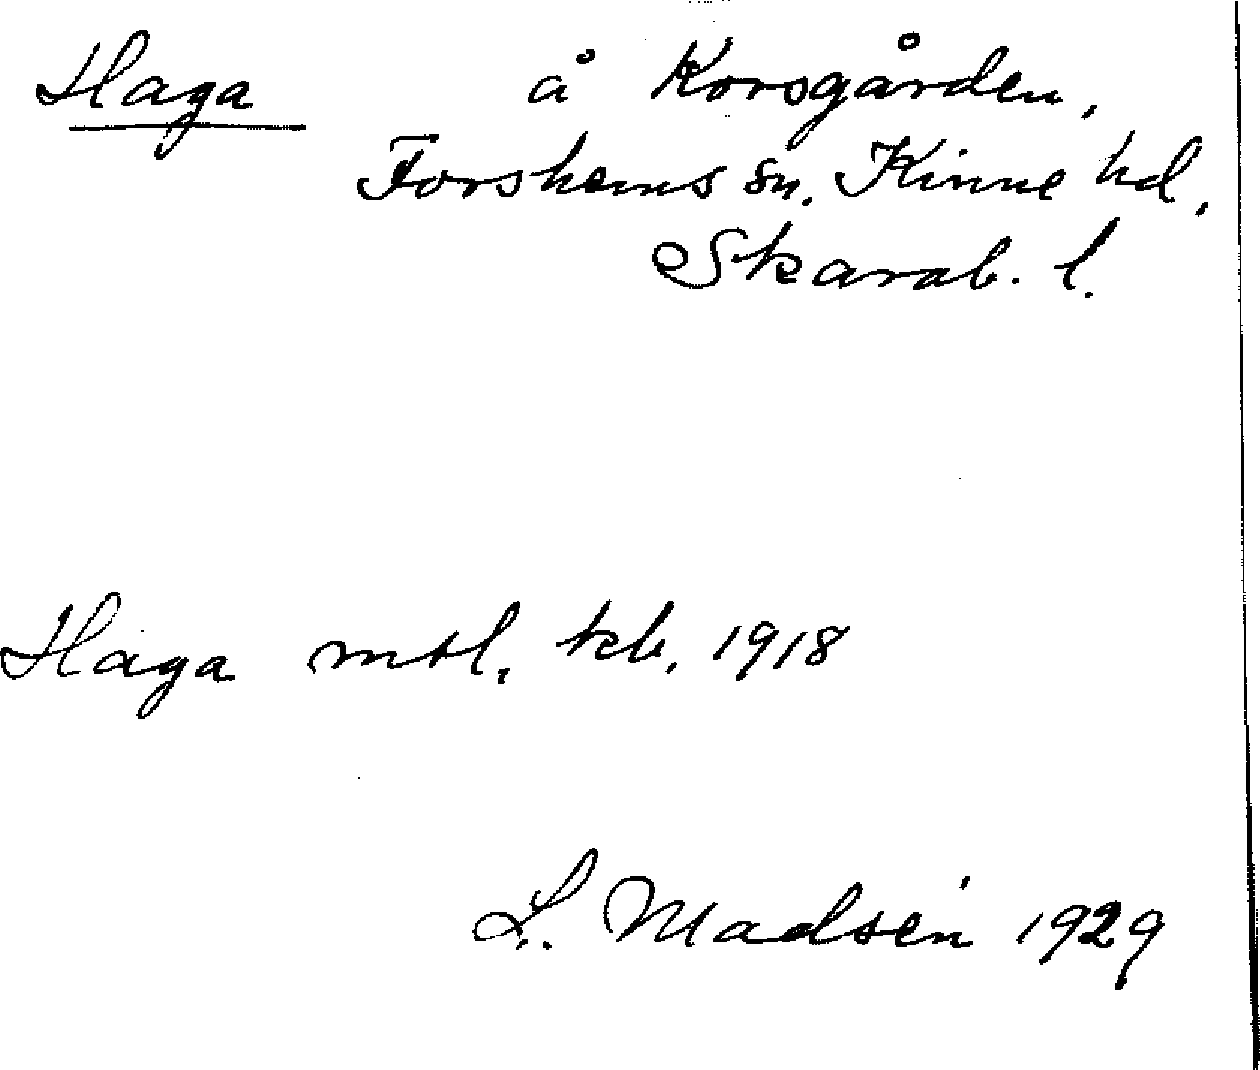 Haga å Korsgården,
Forshems sn, Kinne hd,
Skarab. l.
Haga mtl, kb, 1918
L. Madsén 1929